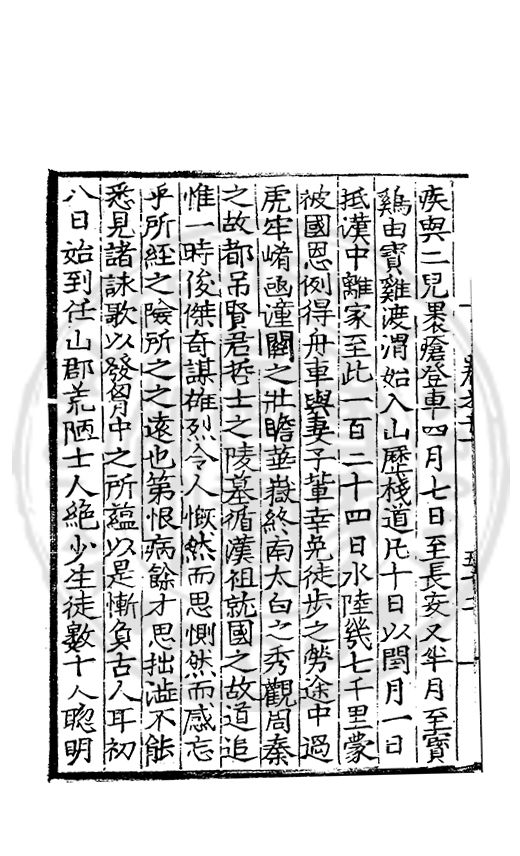 疾與二兒裹瘡登車四月七日至長安又半月至寶
鷄由寶雞渡渭始入山歷棧道凡十日以閏月一日
抵漢中離家至此一百二十四日水陸幾七千里蒙
被國恩例得舟車與妻子輩幸免徒步之勞途中過
虎牢崤函潼關之壯瞻華嶽終南太白之秀觀周秦
之故都吊賢君哲士之陵墓循漢祖就國之故道追
惟一時俊傑奇謀雄烈令人慨然而思惻然而感忘
乎所經之險所之之遠也第恨病餘才思拙澁不能
悉見諸詠歌以發胷中之所蘊以是慚負古人耳初
八日始到任山郡荒陋士人絶少生徒數十人聦明